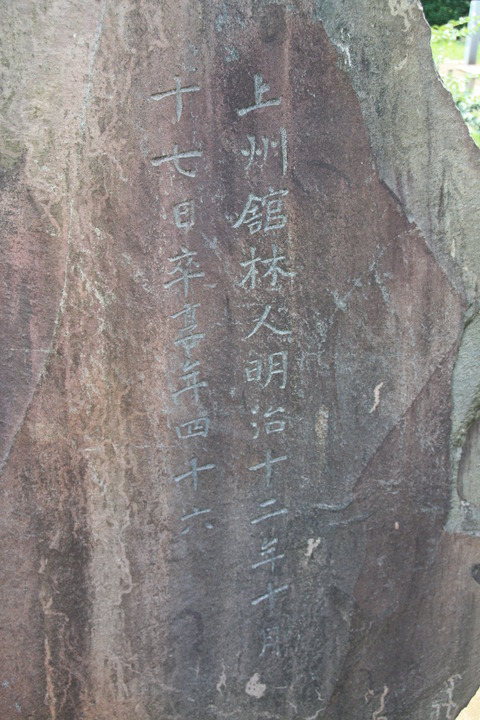 上州舘林人明治十二年十月
十七日卒享年四十六